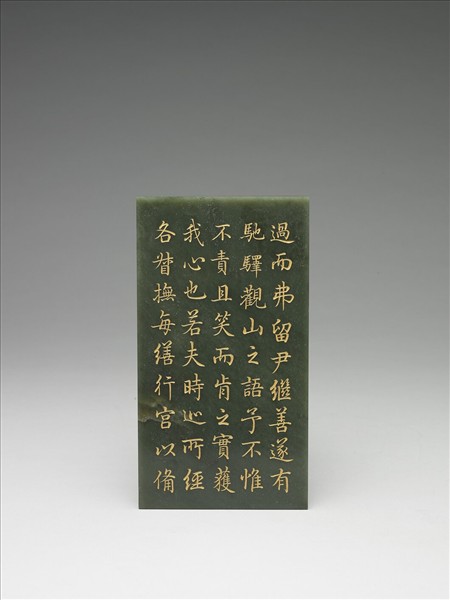 過而弗留尹繼善遂有
馳驛觀山之語予不惟
不責且笑而肯之實獲
我心也若夫時巡所經
各督撫每繕行宮以備